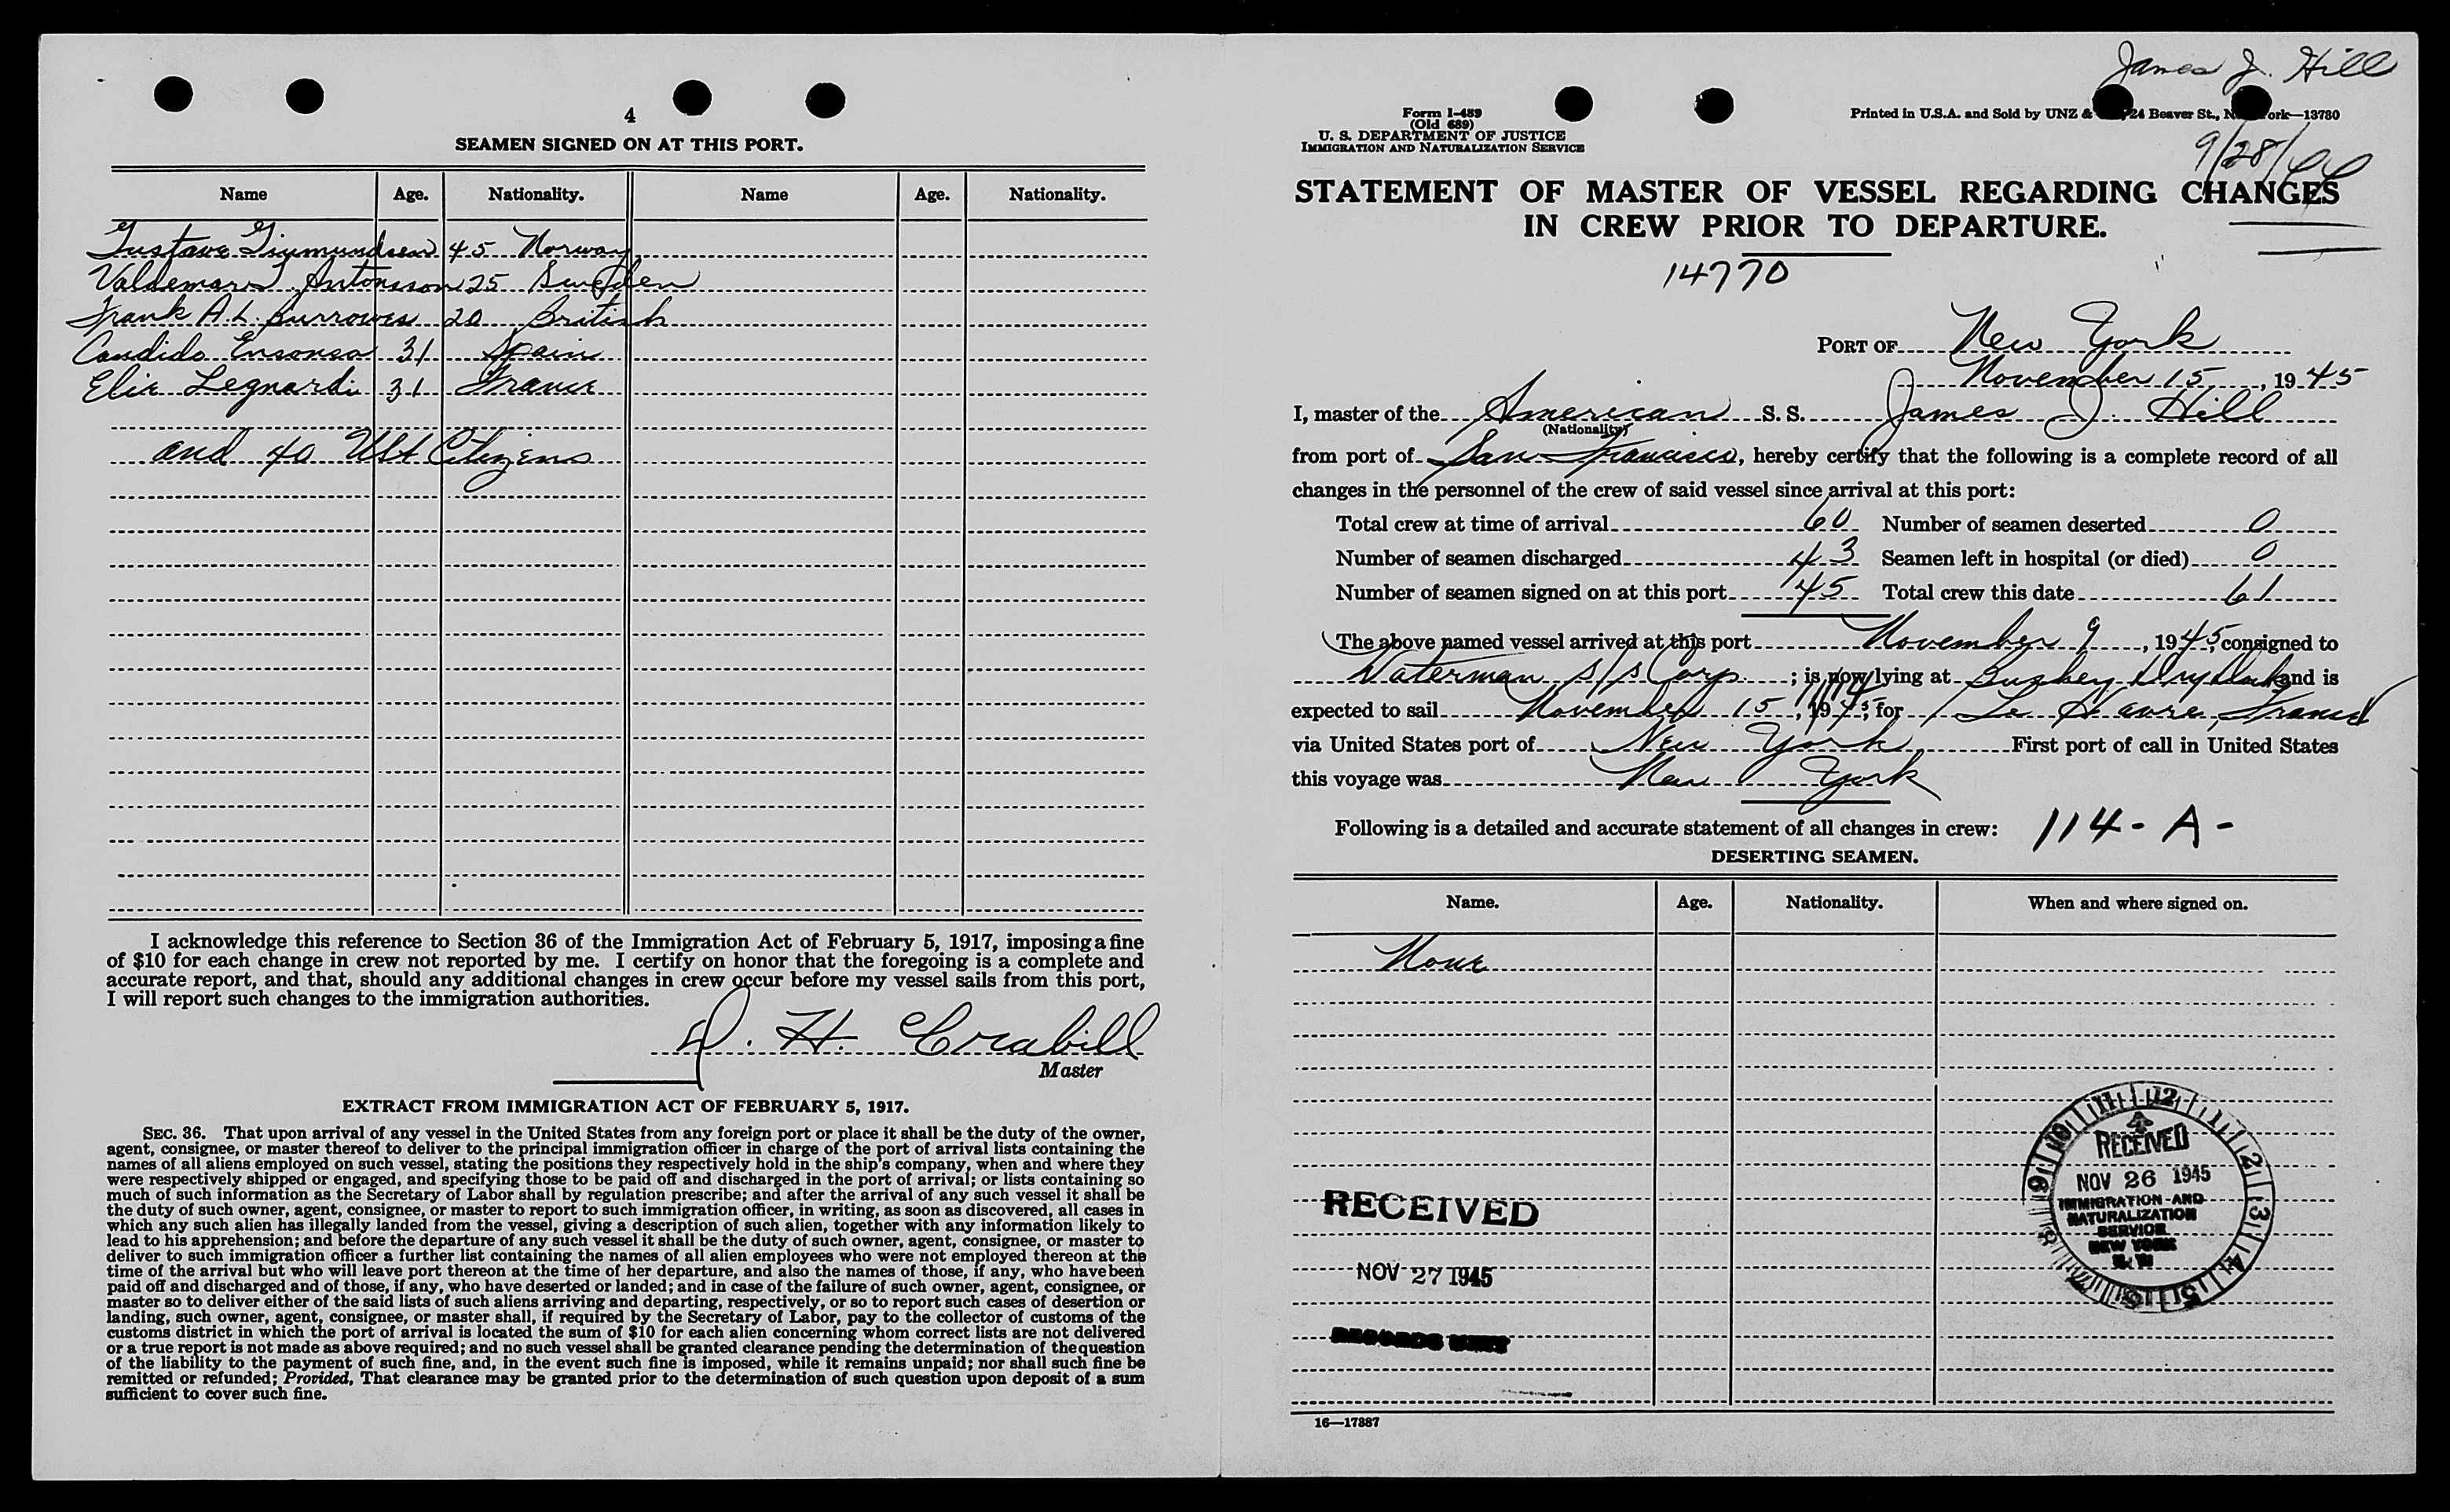 4
SEAMEN SIGNED ON AT THIS PORT.
Name Age. Nationality. Name Age. Nationality.
Gustave Sigmundsen 45 Norway
Valdemar Antonsson 25 Sweden
Frank A. L. Burrowes 20 British
Candido 31 Spain
Elie Legnardi 31 France
and 40 USA Citizens
I acknowledge this reference to Section 36 of the Immigration Act of February 5, 1917, imposing a fine
of $10 for each change in crew not reported by me. I certify on honor that the foregoing is a complete and
accurate report, and that, should any additional changes in crew occur before my vessel sails from this port,
I will report such changes to the immigration authorities.
D. H. Crabill
Master
EXTRACT FROM IMMIGRATION ACT OF FEBRUARY 5, 1917.
SEC. 36. That upon arrival of any vessel in the United States from any foreign port or place it shall be the duty of the owner,
agent, consignee, or master thereof to deliver to the principal immigration officer in charge of the port of arrival lists containing the
names of all aliens employed on such vessel, stating the positions they respectively hold in the ship's company, when and where they
were respectively shipped or engaged, and specifying those to be paid off and discharged in the port of arrival; or lists containing so
much of such information as the Secretary of Labor shall by regulation prescribe; and after the arrival of any such vessel it shall be
the duty of such owner, agent, consignee, or master to report to such immigration officer, in writing, as soon as discovered, all cases in
which any such alien has illegally landed from the vessel, giving a description of such alien, together with any information likely to
lead to his apprehension; and before the departure of any such vessel it shall be the duty of such owner, agent, consignee, or master to
deliver to such immigration officer a further list containing the names of all alien employees who were not employed thereon at the
time of the arrival but who will leave port thereon at the time of her departure, and also the names of those, if any, who have been
paid off and discharged and of those, if any, who have deserted or landed; and in case of the failure of such owner, agent, consignee, or
master so to deliver either of the said lists of such aliens arriving and departing, respectively, or so to report such cases of desertion or
landing, such owner, agent, consignee, or master shall, if required by the Secretary of Labor, pay to the collector of customs of the
customs district in which the port of arrival is located the sum of $10 for each alien concerning whom correct lists are not delivered
or a true report is not made as above required; and no such vessel shall be granted clearance pending the determination of the question
of the liability to the payment of such fine, and, in the event such fine is imposed, while it remains unpaid; nor shall such fine be
remitted or refunded; Provided, That clearance may be granted prior to the determination of such question upon deposit of a sum
sufficient to cover such fine.
James J. Hill
Form I-489
(Old 689)
U. S. DEPARTMENT OF JUSTICE
IMMIGRATION AND NATURALIZATION SERVICE
Printed in U.S.A. and Sold by UNZ & 24 Beaver St., ork—13780
9/28/44
STATEMENT OF MASTER OF VESSEL REGARDING CHANGES
IN CREW PRIOR TO DEPARTURE.
14770
PORT OF New York
November 15, 1945
I, master of the American S. S. James J. Hill
(Nationality)
from port of San Francisco, hereby certify that the following is a complete record of all
changes in the personnel of the crew of said vessel since arrival at this port:
Total crew at time of arrival 60 Number of seamen deserted 0
Number of seamen discharged 43 Seamen left in hospital (or died) 0
Number of seamen signed on at this port 45 Total crew this date 61
The above named vessel arrived at this port November 9, 1945, consigned to
Waterman S/S Corp. ; is now lying at Drydock and is
expected to sail November 15, 1945, for Le Havre, France
via United States port of New York First port of call in United States
this voyage was New York
Following is a detailed and accurate statement of all changes in crew: 114-A-
DESERTING SEAMEN.
Name. Age. Nationality. When and where signed on.
None
RECEIVED
NOV 27 1945
RECEIVED
NOV 26 1945
IMMIGRATION AND
NATURALIZATION
SERVICE
NEW YORK
16—17887